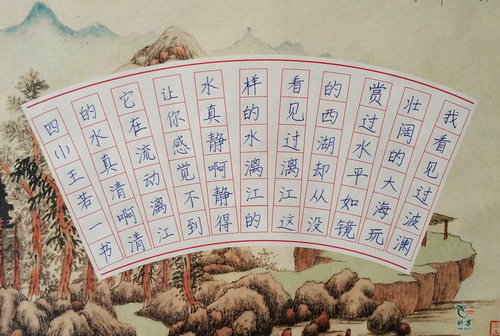 我看见过波澜
壮阔的大海玩
赏过水平如镜
的西湖却从没
看见过漓江这
样的水漓江的
水真静啊静得
让你感觉不到
它在流动漓江
的水真清啊清
四小王若一书